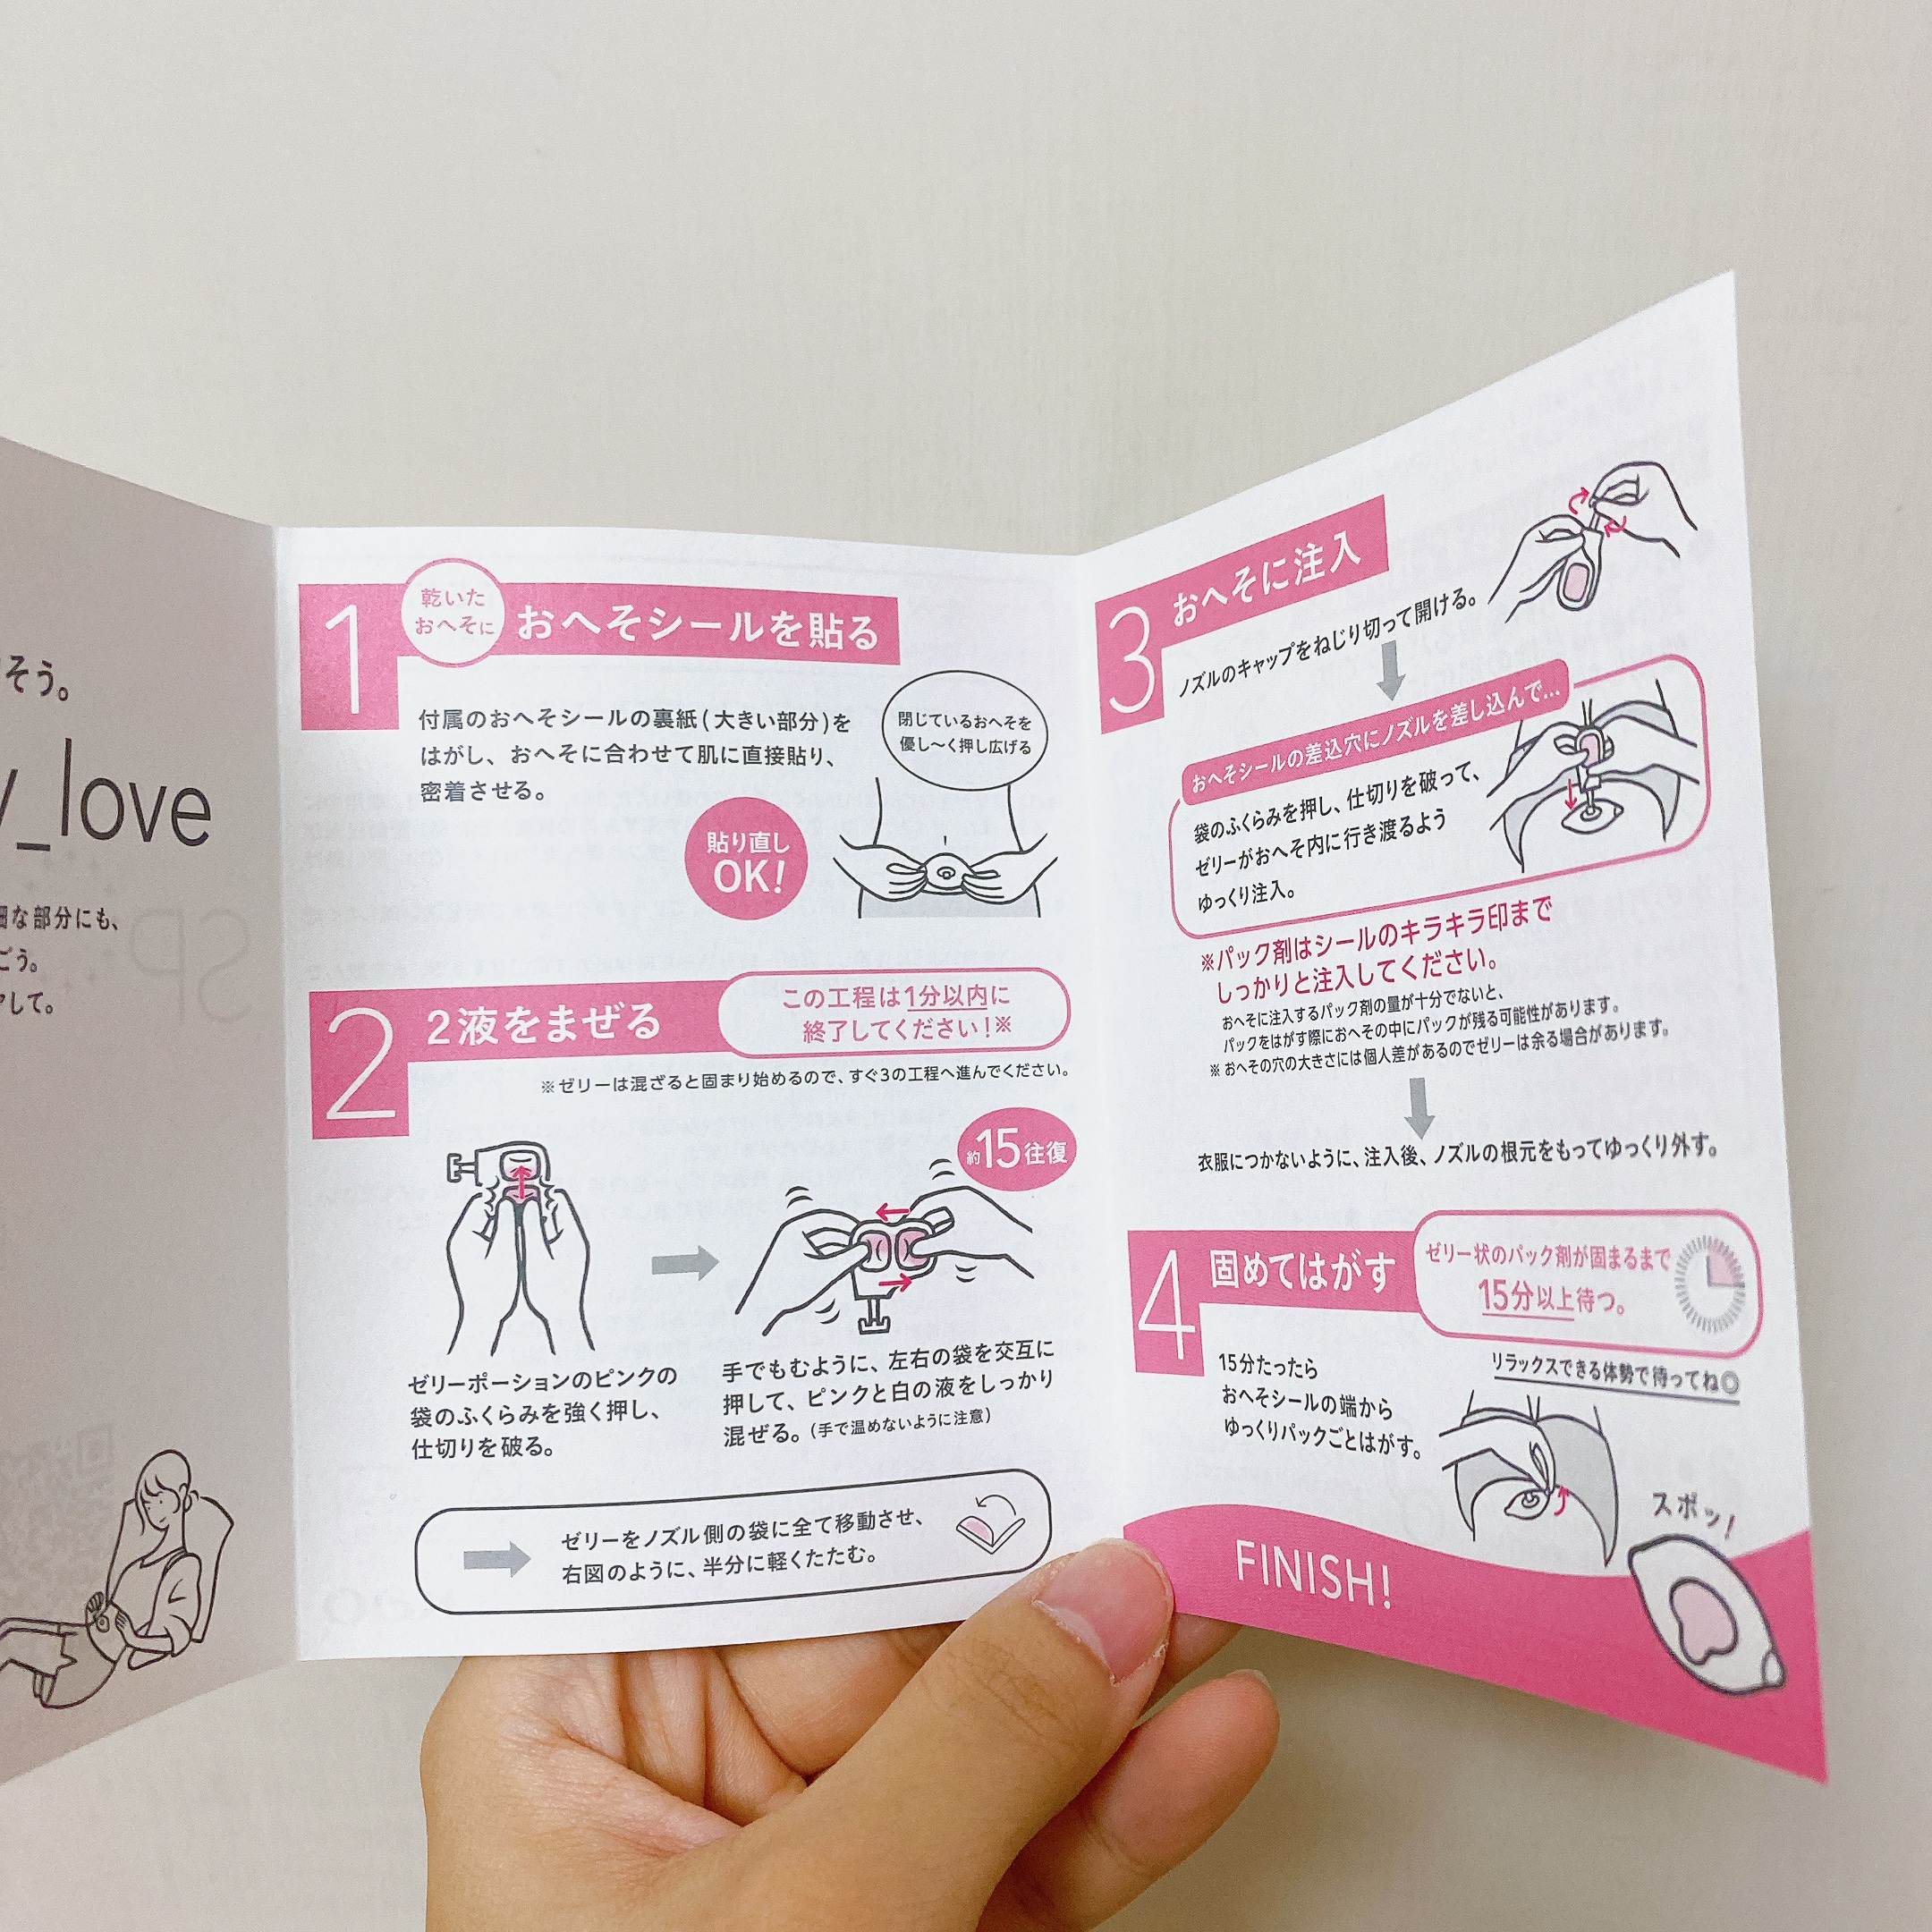 そう。
y_love
な部分にも、
ごう。
して。
1
乾いた
おへそに
おへそシールを貼る
付属のおへそシールの裏紙(大きい部分)を
はがし、おへそに合わせて肌に直接貼り、
密着させる。
閉じているおへそを
優し〜く押し広げる
貼り直し
OK!
2
2液をまぜる
この工程は1分以内に
終了してください!※
※ゼリーは混ざると固まり始めるので、すぐ3の工程へ進んでください。
約15往復
ゼリーポーションのピンクの
袋のふくらみを強く押し、
仕切りを破る。
手でもむように、左右の袋を交互に
押して、ピンクと白の液をしっかり
混ぜる。(手で温めないように注意)
ゼリーをノズル側の袋に全て移動させ、
右図のように、半分に軽くたたむ。
3
おへそに注入
ノズルのキャップをねじり切って開ける。
おへそシールの差込穴にノズルを差し込んで...
袋のふくらみを押し、仕切りを破って、
ゼリーがおへそ内に行き渡るよう
ゆっくり注入。
※パック剤はシールのキラキラ印まで
しっかりと注入してください。
おへそに注入するパック剤の量が十分でないと、
パックをはがす際におへその中にパックが残る可能性があります。
※おへその穴の大きさには個人差があるのでゼリーは余る場合があります。
衣服につかないように、注入後、ノズルの根元をもってゆっくり外す。
4
固めてはがす
ゼリー状のパック剤が固まるまで
15分以上待つ。
リラックスできる体勢で待ってね◎
15分たったら
おへそシールの端から
ゆっくりパックごとはがす。
スポッ!
FINISH!